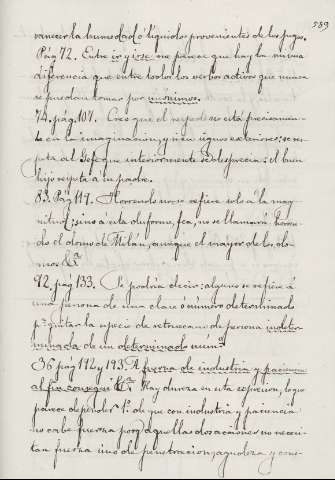 589
vanecer la humedad ó líquidos provenientes de los jugos.
Pág 72. Entre ir y irse me parece que hay la misma
diferencia que entre todos los verbos activos que nunca
se puedan tomar por sinónimos.
74. pág. 107. Creo que el respeto no está precisamen-
te en la imaginacion, y ni en signos exteriores; se res-
peta al Gefe que interiormente se desprecia: el buen
hijo respeta á su padre.
83. Pág 117. Horrendo no se refiere solo á la mag-
nitud; sino á esta disforme, fea, no se llamará horren-
do el domo de Milán, aunque el mayor de los do-
mos &a
92. pág 133. Se podria decir; alguno se refiere á
una persona de una clase ó número determinado
pa quitar la especie de retruecano de persona indeter-
minada de un determinado núm.o
36 pág 112 y 193. A fuerza de industria y paciencia
al fin consegue &a Hay dureza en esta espresion, lo que
parece depender 1.o de que con industria y paciencia
no cabe fuerza porq. aquellas dos acciones no necesi-
tan fuerza sino de penetracion, agudeza y cons-